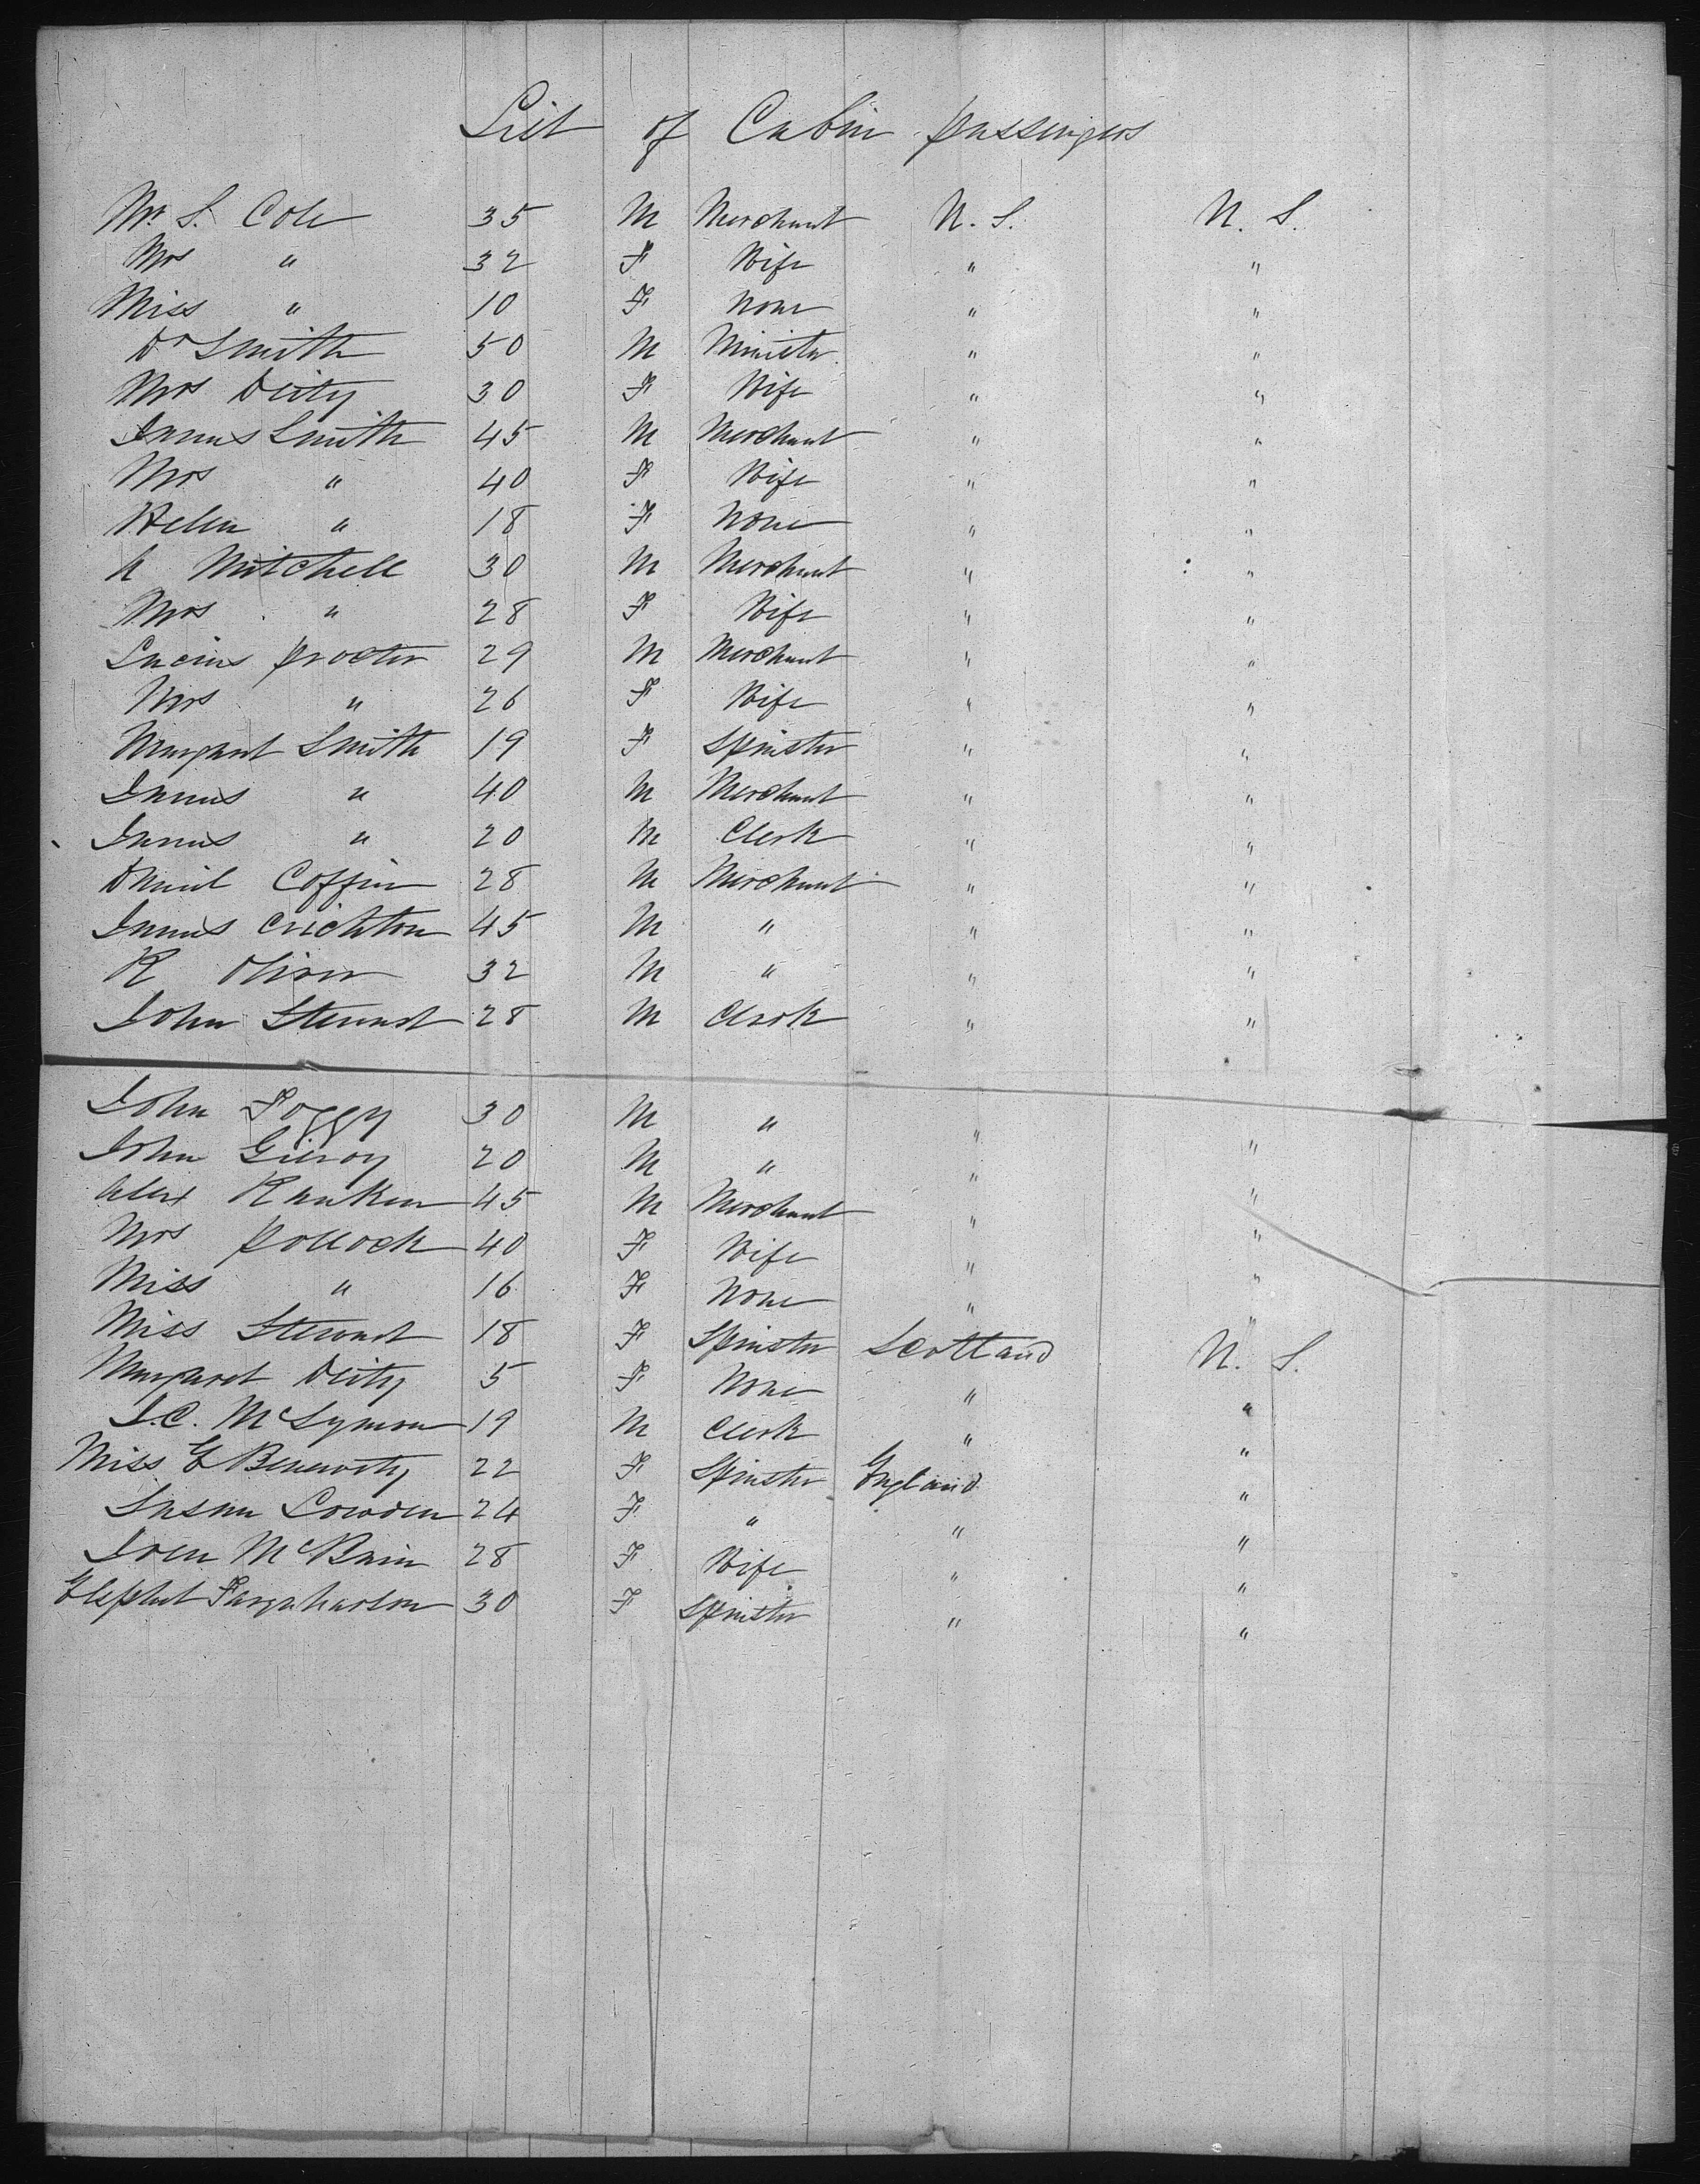 List of Cabin passengers
Mr S. Cole 35 M Merchant N. S. N. S.
Mrs " 32 F Wife " "
Miss " 10 F None " "
Dr Smith 50 M Minister " "
Mrs Deity 30 F Wife " "
James Smith 45 M Merchant " "
Mrs " 40 F Wife " "
Helen " 18 F None " "
A Mitchell 30 M Merchant " "
Mrs " 28 F Wife " "
Lucius Procter 29 M Merchant " "
Mrs " 26 F Wife " "
Margaret Smith 19 F Spinster " "
James " 40 M Merchant " "
James " 20 M Clerk " "
Daniel Coffin 28 M Merchant " "
James Crichton 45 M " " "
R Oliver 32 M " " "
John Stewart 28 M Clerk " "
John Foggy 30 M " " "
John Gilroy 20 M " " "
Alex Ranken 45 M Merchant " "
Mrs Pollock 40 F Wife " "
Miss " 16 F None " "
Miss Stewart 18 F Spinster Scotland N. S.
Margaret Deity 5 F None " "
J.C. McSymon 19 M Clerk " "
Miss E 22 F Spinster England "
Susan Cowden 24 F " " "
McBain 28 F Wife " "
Farquharson 30 F Spinster " "